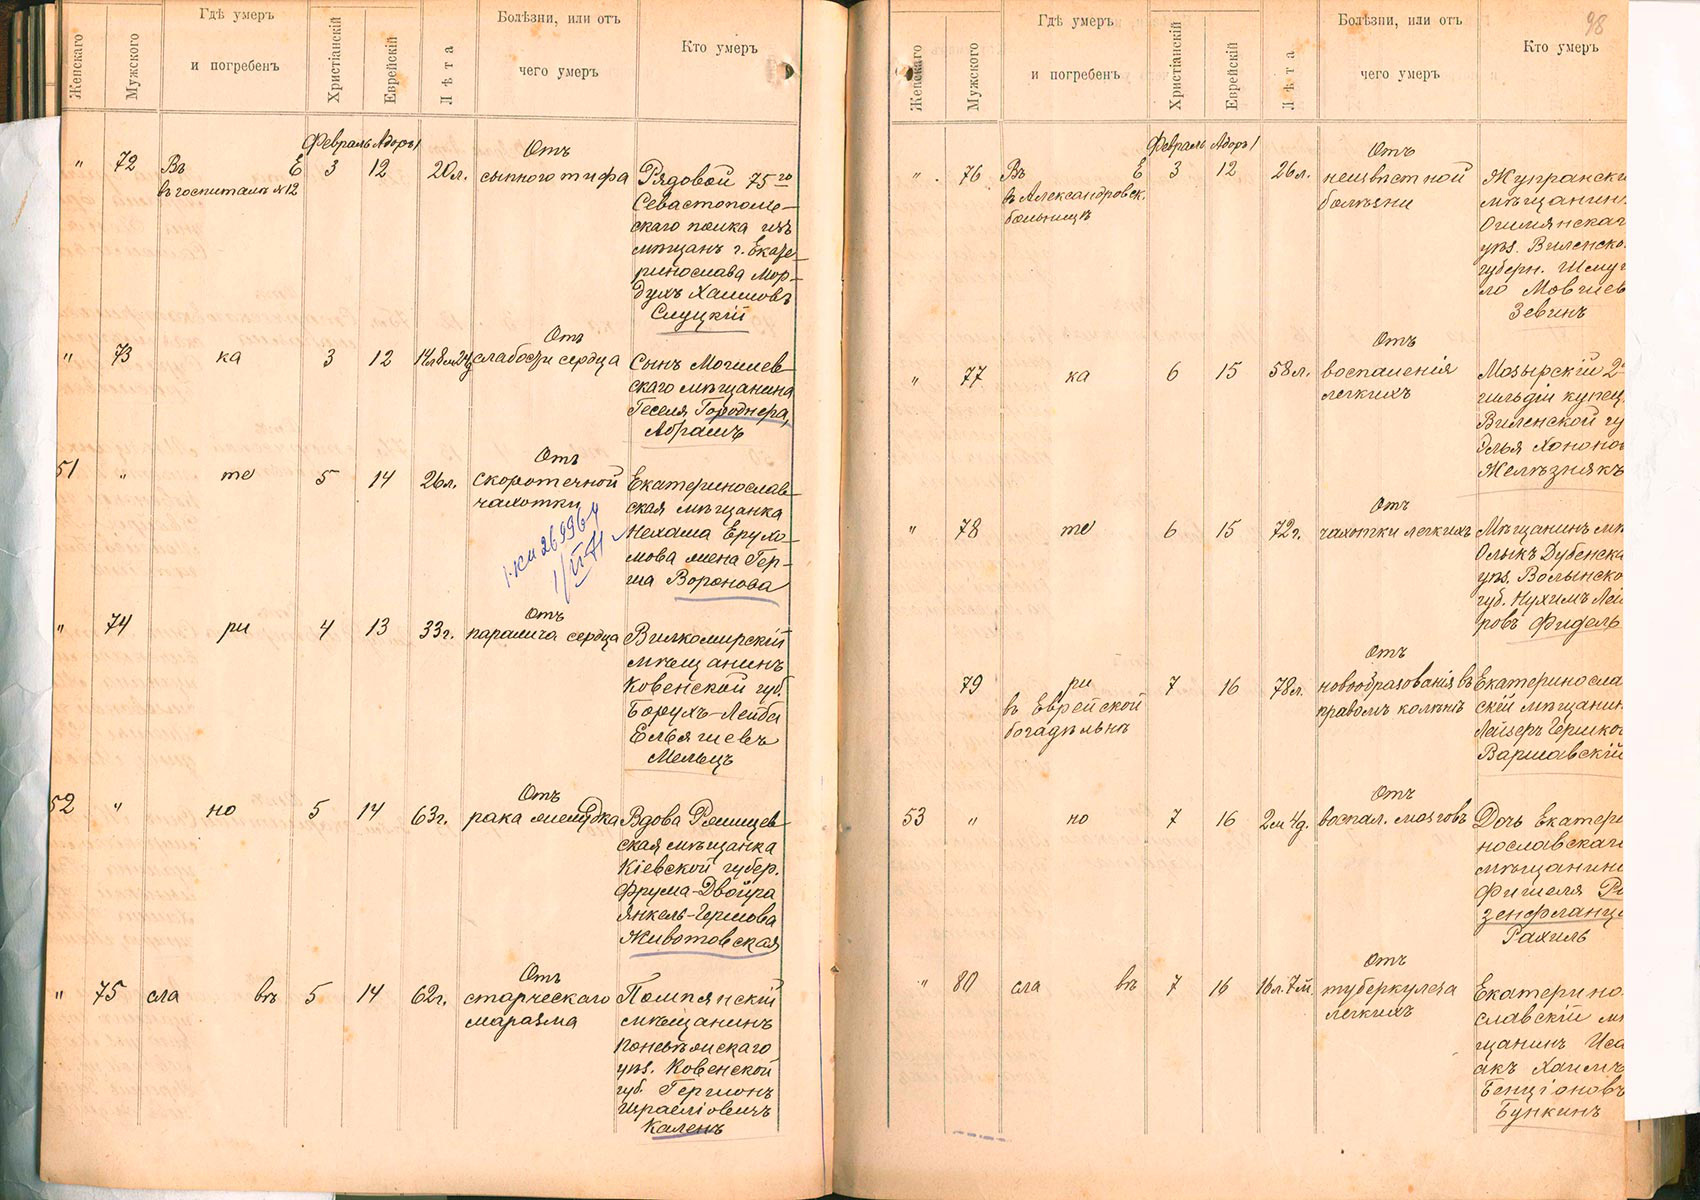 Женскаго
Мужского
Гдѣ умеръ
и погребенъ
Христіанскій
Еврейскій
Лѣта
Болѣзни, или отъ
чего умеръ
Кто умеръ
Февраль Адоръ 1
" 72 Въ Е 3 12 20л. Отъ
въ госпиталѣ №12
сыпного тифа
Рядовой 75го
Севастополь–
скаго полка изъ
мѣщанъ г. Екате–
ринослава Мор–
духъ Хаимовъ
Слуцкій
" 73 ка 3 12 14л8м24д Отъ
слабости сердца
Сынъ Могилев–
скаго мѣщанина
Геселя Городнера,
Абрамъ
51 " те 5 14 26л. Отъ
скоротечной
чахотки
Екатеринослав–
ская мѣщанка
Нехама Ерухо–
мова жена Гер–
ша Воронова
" 74 ри 4 13 33г. Отъ
паралича сердца
Вилкомирскій
мѣщанинъ
Ковенской губ.
Борухъ-Лейба
Ельяшевъ
Мельцъ
52 " но 5 14 63г. Отъ
рака желудка
Вдова Ржищев–
ская мѣщанка
Кіевской губер.
Фрума-Двойра
Янкель-Гершова
Животовская
" 75 сла въ 5 14 62г. Отъ
старческаго
маразма
Помпянскій
мѣщанинъ
Поневѣжскаго
уѣз. Ковенской
губ. Гершонъ
Израеліовичъ
Каленъ
98
Женскаго
Мужского
Гдѣ умеръ
и погребенъ
Христіанскій
Еврейскій
Лѣта
Болѣзни, или отъ
чего умеръ
Кто умеръ
Февраль Адоръ 1
" 76 Въ Е 3 12 26л. Отъ
въ Александровск.
больницѣ
неизвѣстной
болѣзни
Жупранскі
мѣщанин
Ошмянскаг
уѣз. Виленско
губерн. Шму
ло Мовшев
Зевинъ
" 77 ка 6 15 58л. Отъ
воспаленія
легкихъ
Мозырскій 2
гильдіи купец
Виленской гу
Элья Хононо
Желѣзнякъ
" 78 те 6 15 72г. Отъ
чахотки легкихъ
Мѣщанинъ мѣ
Олыкъ Дубенска
уѣз. Волынско
губ. Нухимъ Лей
ровъ Фидель
79 ри 7 16 78л. Отъ
въ Еврейской
богадѣльнѣ
новообразованія въ
правомъ колѣнѣ
Екатериносла
скій мѣщанин
Лейзеръ Гершко
Варшавскій
53 " но 7 16 2м 4д. Отъ
воспал. мозговъ
Дочь Екатери
нославскаг
мѣщанин
Фишеля Ро
зенфланц
Рахиль
" 80 сла въ 7 16 16л.7м. Отъ
туберкулеза
легкихъ
Екатерино
славскій мѣ
щанинъ Иса
акъ Хаимъ
Бенціоновъ
Бункинъ